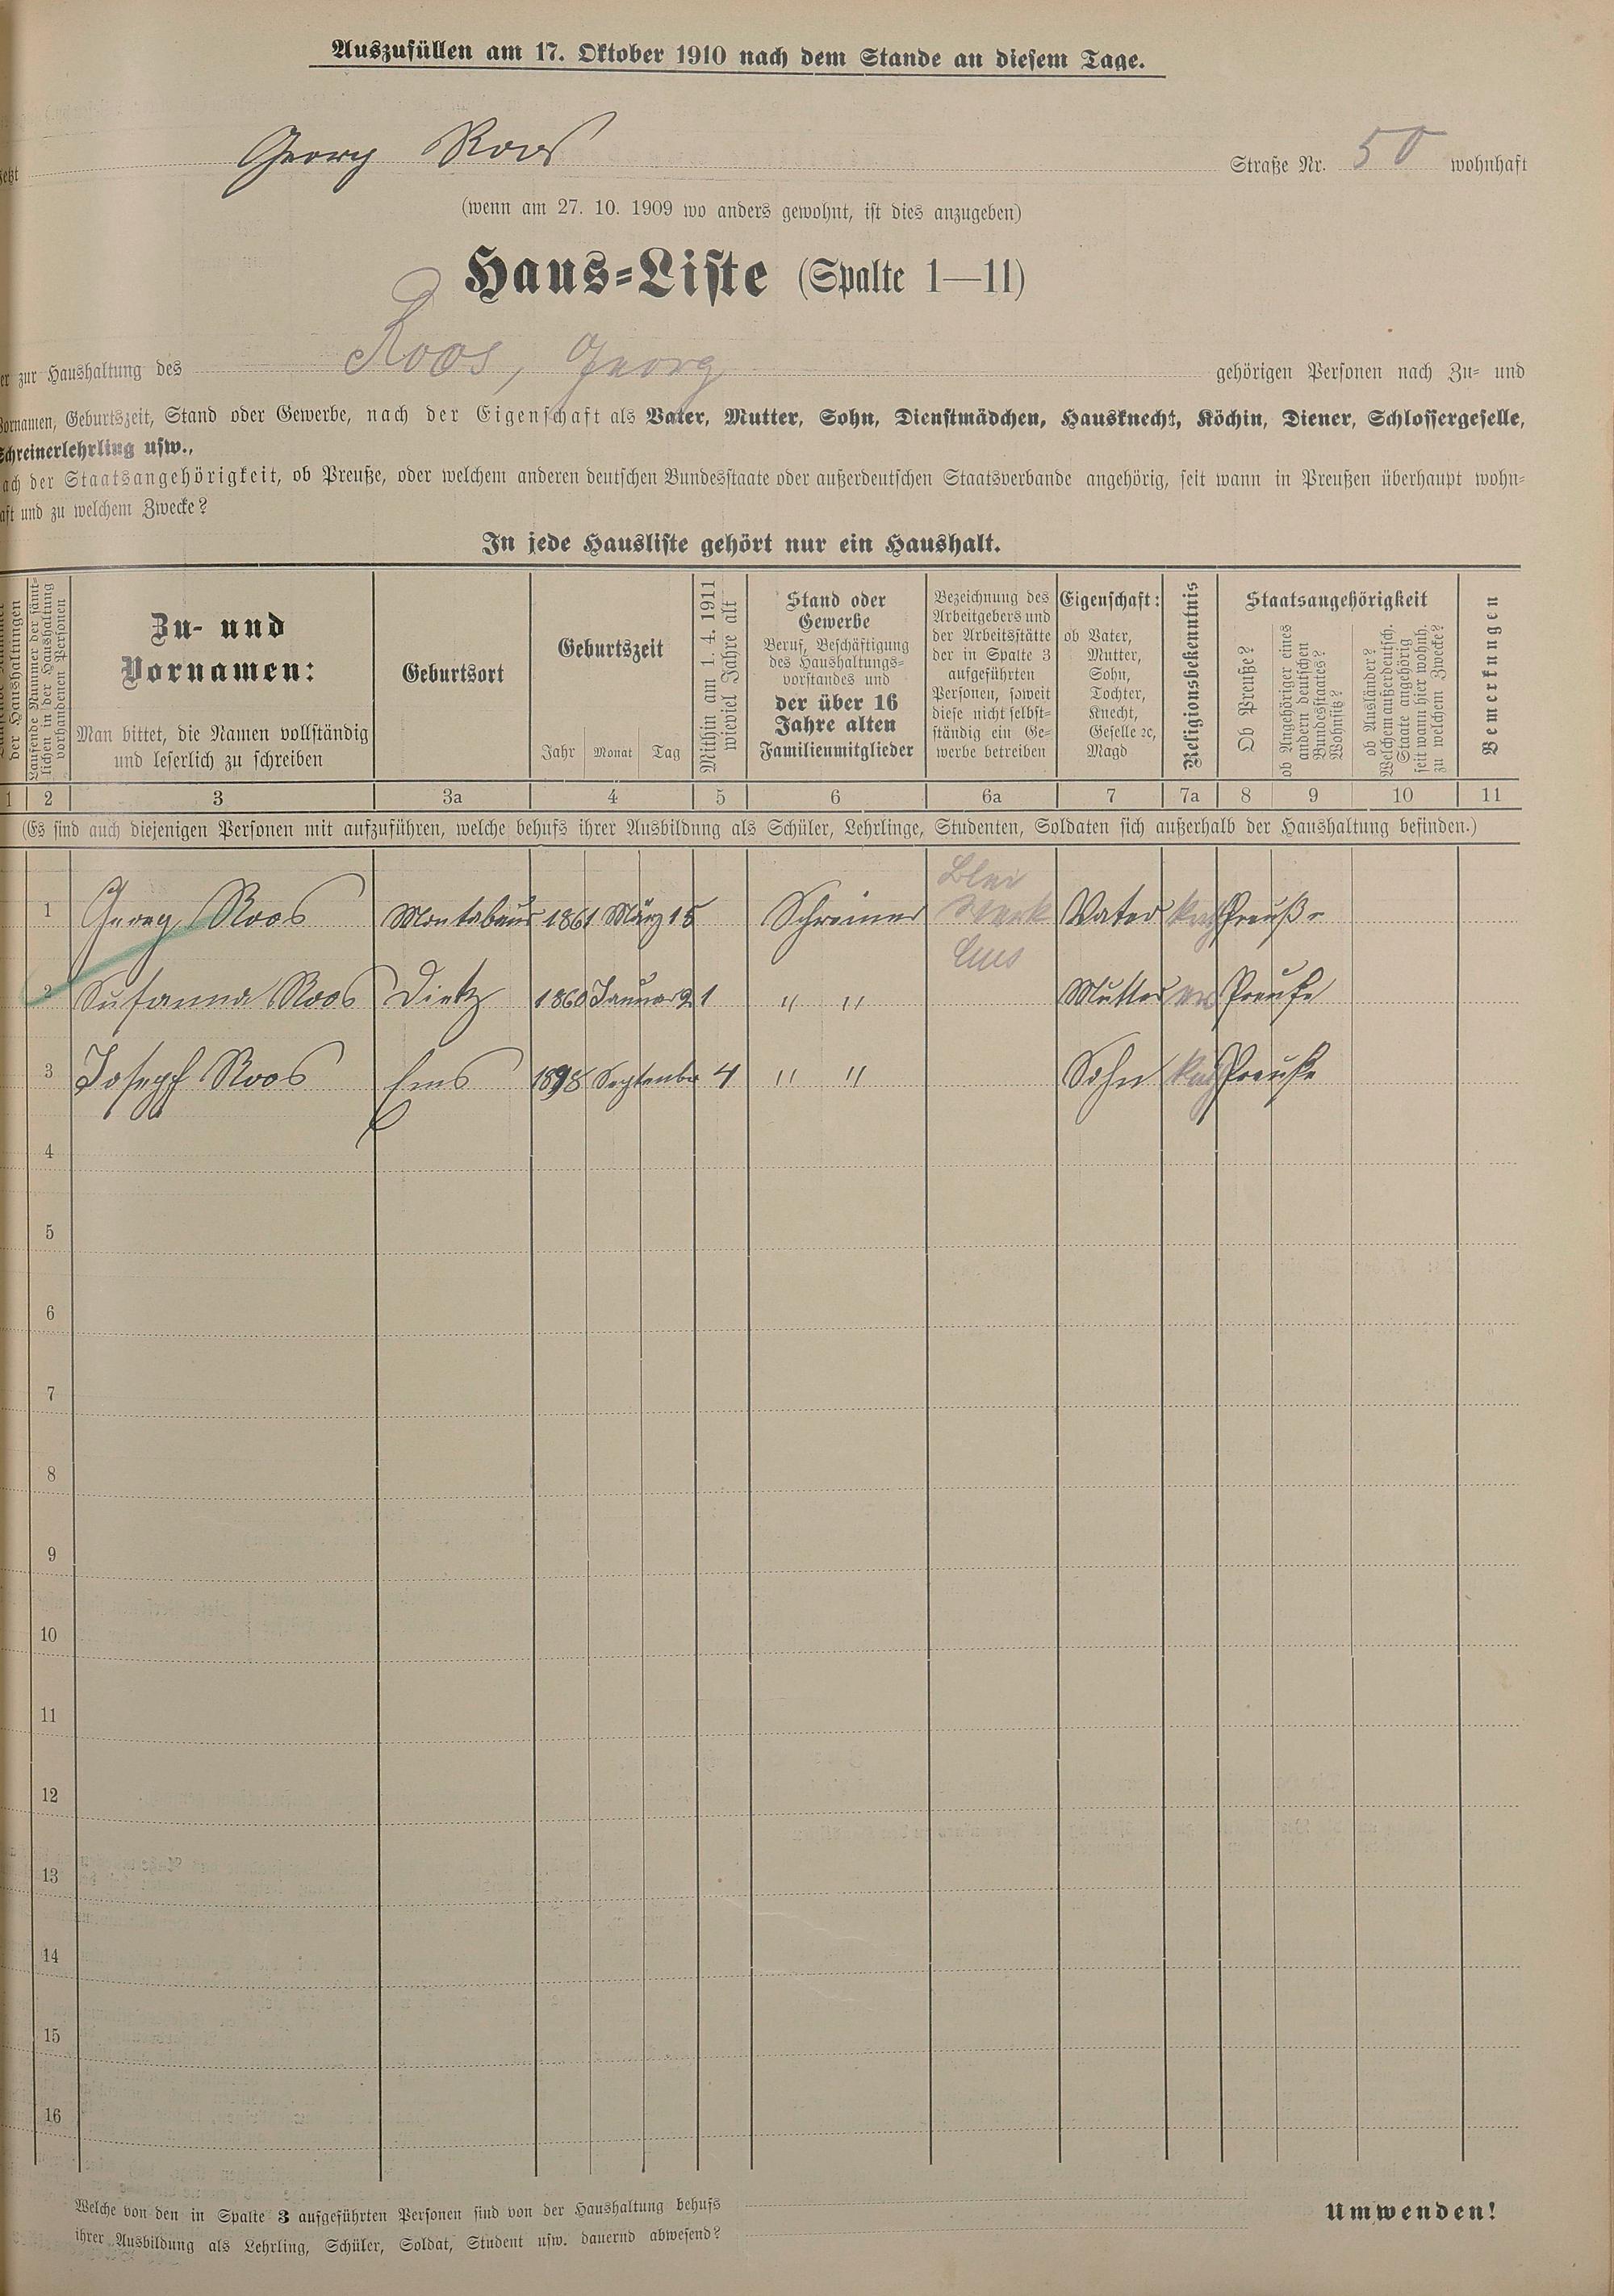 Auszufüllen am 17. Oktober 1910 nach dem Stande an diesem Tage.
Georg Roos Straße Nr. 50 wohnhaft
(wenn am 27. 10. 1909 wo anders gewohnt, ist dies anzugeben)
Haus-Liste (Spalte 1—11)
zur Haushaltung des Roos, Georg gehörigen Personen nach Zu- und
Vornamen, Geburtszeit, Stand oder Gewerbe, nach der Eigenschaft als Vater, Mutter, Sohn, Dienstmädchen, Hausknecht, Köchin, Diener, Schlossergeselle,
Schreinerlehrling usw.,
nach der Staatsangehörigkeit, ob Preuße, oder welchem anderen deutschen Bundesstaate oder außerdeutschen Staatsverbande angehörig, seit wann in Preußen überhaupt wohn-
haft und zu welchem Zwecke?
In jede Hausliste gehört nur ein Haushalt.
der Haushaltungen
Laufende Nummer der sämt-
lichen in der Haushaltung
vorhandenen Personen
Zu- und
Vornamen:
Man bittet, die Namen vollständig
und leserlich zu schreiben
Geburtsort
Geburtszeit
Jahr Monat Tag
Mithin am 1. 4. 1911
wieviel Jahre alt
Stand oder
Gewerbe
Beruf, Beschäftigung
des Haushaltungs-
vorstandes und
der über 16
Jahre alten
Familienmitglieder
Bezeichnung des
Arbeitgebers und
der Arbeitsstätte
der in Spalte 3
aufgeführten
Personen, soweit
diese nicht selbst-
ständig ein Ge-
werbe betreiben
Eigenschaft:
ob Vater,
Mutter,
Sohn,
Tochter,
Knecht,
Geselle ꝛc,
Magd
Religionsbekenntnis
Staatsangehörigkeit
Ob Preuße?
ob Angehöriger eines
andern deutschen
Bundesstaates?
Wohnsitz?
ob Ausländer?
Welchem außerdeutsch.
Staate angehörig
seit wann hier wohnh.
zu welchem Zwecke?
Bemerkungen
1 2 3 3a 4 5 6 6a 7 7a 8 9 10 11
(Es sind auch diejenigen Personen mit aufzuführen, welche behufs ihrer Ausbildung als Schüler, Lehrlinge, Studenten, Soldaten sich außerhalb der Haushaltung befinden.)
1 Georg Roos Montabaur 1861 März 15 Schreiner Blei Werk Ems Vater kath Preuße
2 Susanna Roos Dietz 1860 Januar 21 " " Mutter ev Preuße
3 Joseph Roos Ems 1898 September 4 " " Sohn kath Preuße
4
5
6
7
8
9
10
11
12
13
14
15
16
Welche von den in Spalte 3 aufgeführten Personen sind von der Haushaltung behufs
ihrer Ausbildung als Lehrling, Schüler, Soldat, Student usw. dauernd abwesend?
Umwenden!